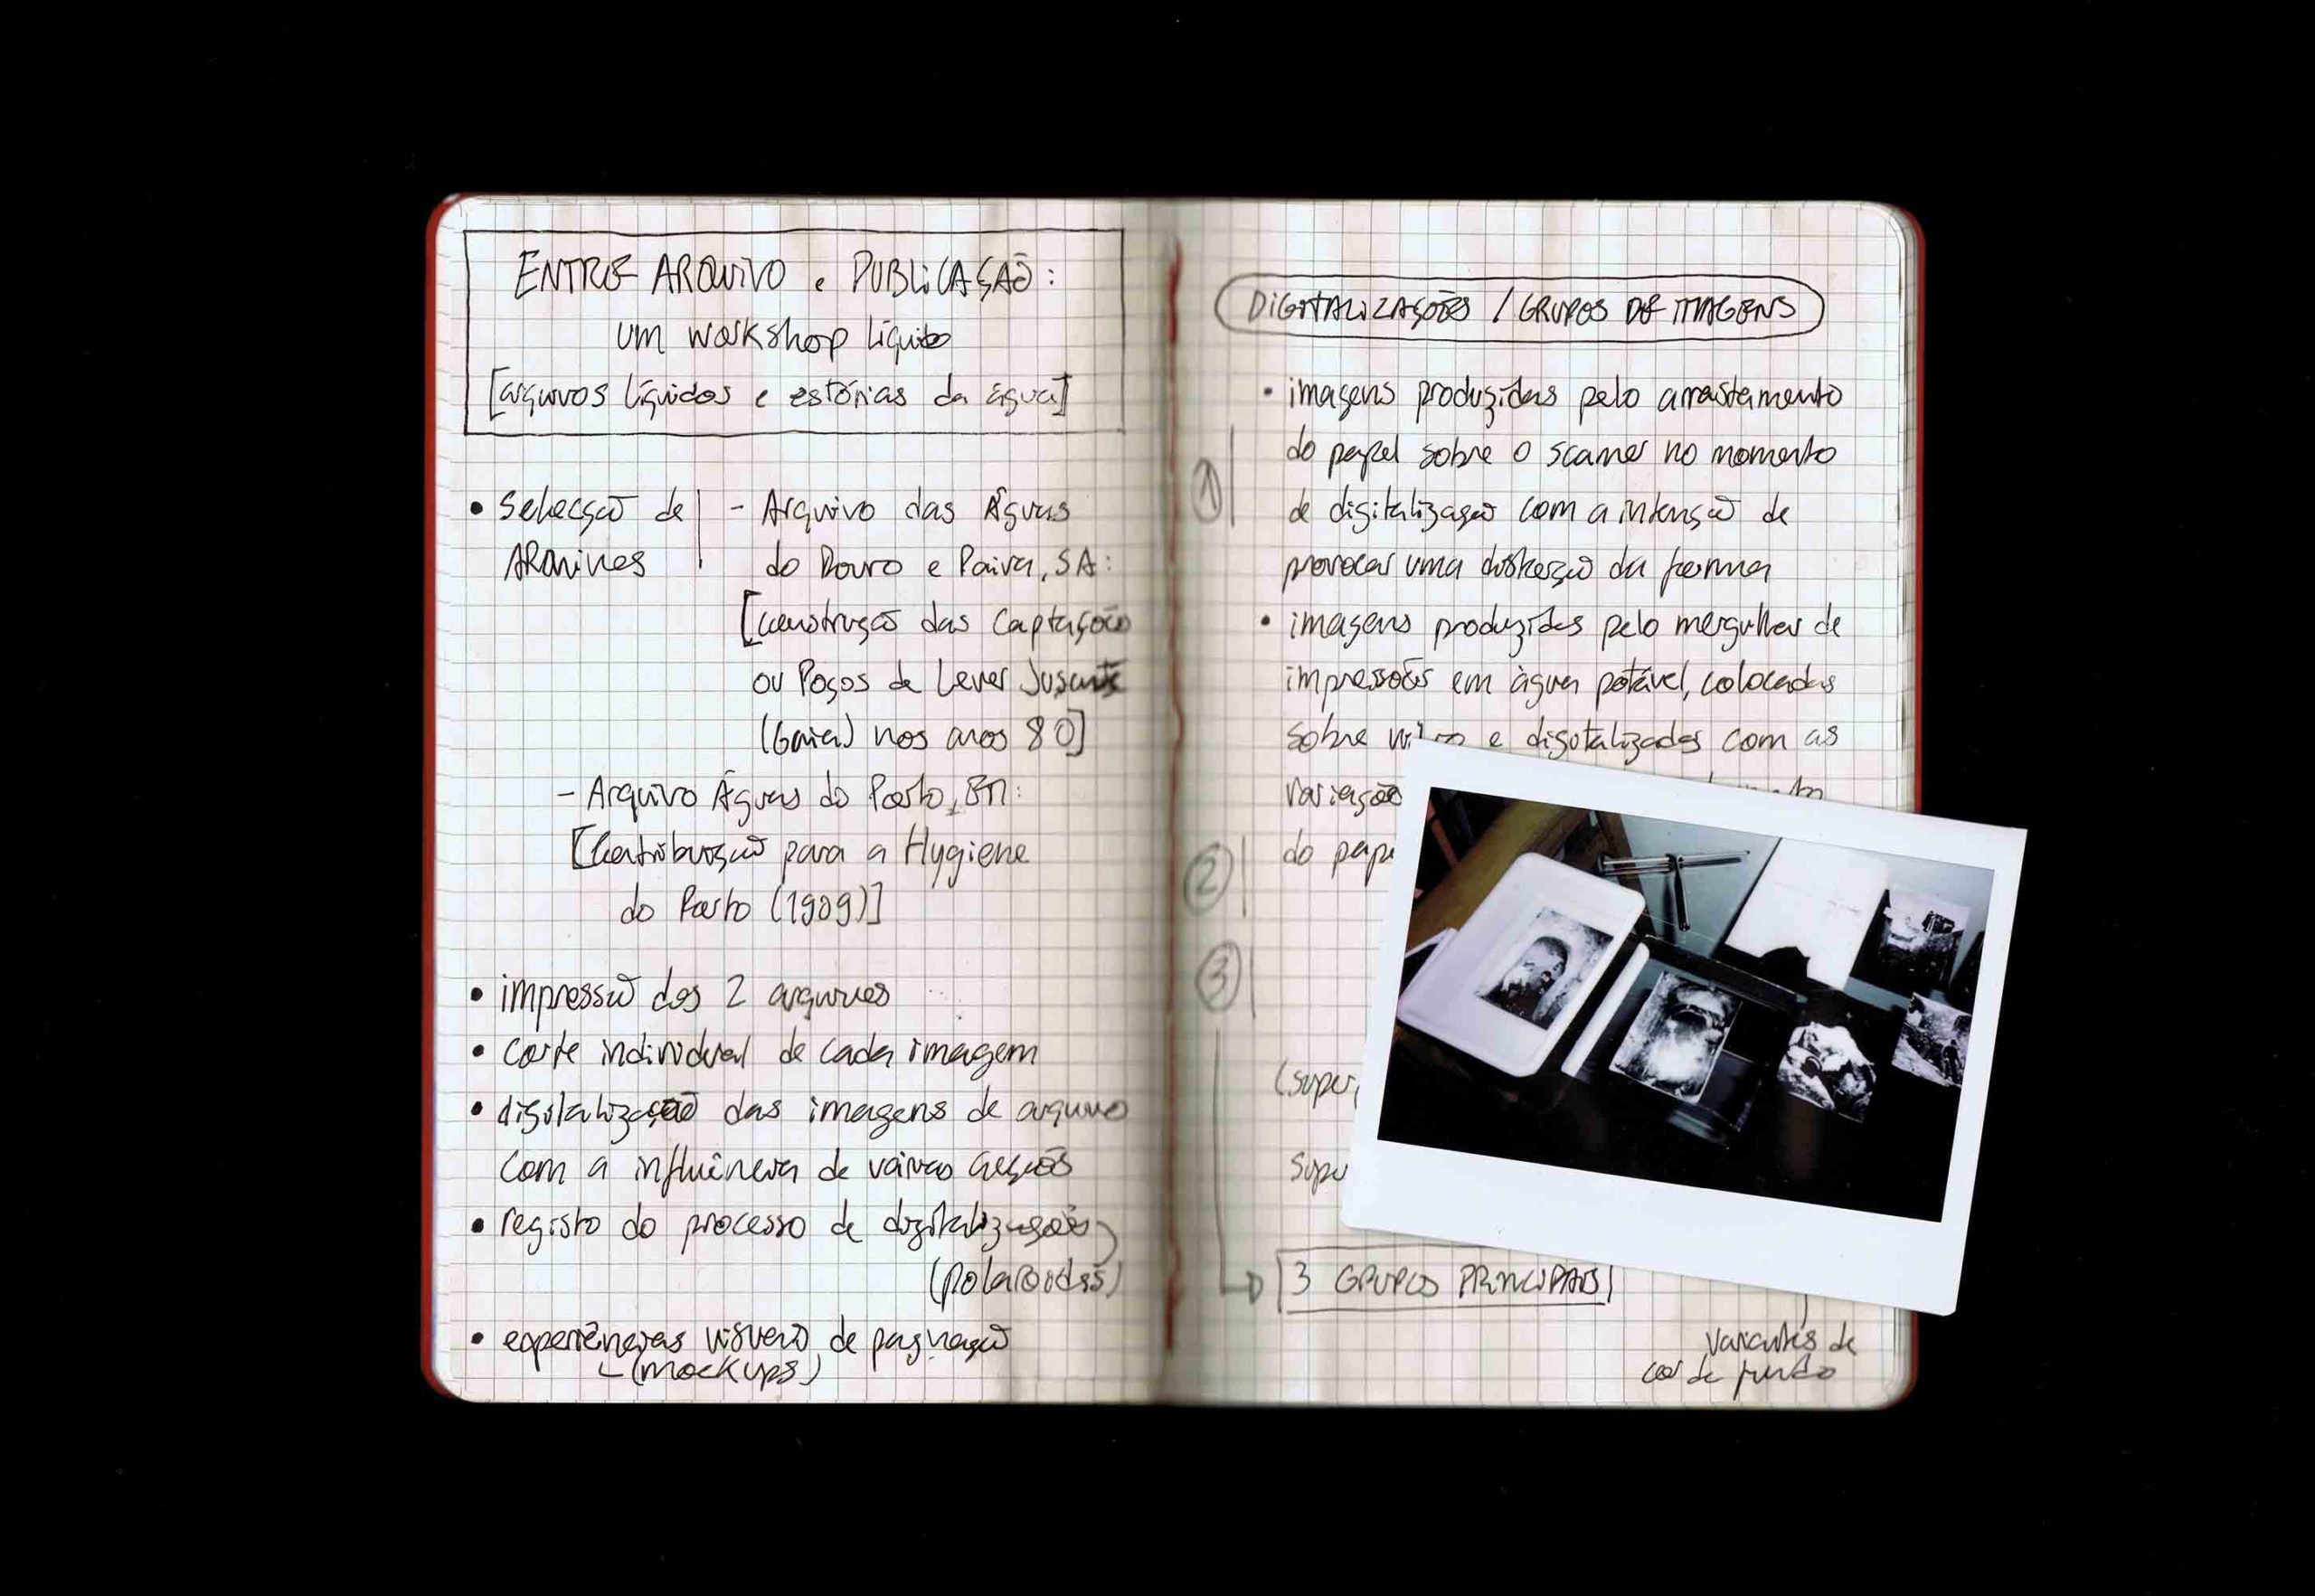 ENTRE ARQUIVO e PUBLICAÇÃO:
um workshop líquido
[arquivos líquidos e estórias da água]
• selecção de
ARQUIVOS
- Arquivo das Águas
do Douro e Paiva, SA:
[construção das Captações
ou Poços de Lever Jusante
(Gaia) nos anos 80]
- Arquivo Águas do Porto, EM:
[Contribuição para a Hygiene
do Porto (1909)]
• impressão dos 2 arquivos
• corte individual de cada imagem
• digitalização das imagens de arquivo
com a influência de várias acções
• registo do processo de digitalizações
(polaroides)
• experiências de paginação
(mockups)
DIGITALIZAÇÕES / GRUPOS DE IMAGENS
• imagens produzidas pelo arrastamento
do papel sobre o scanner no momento
① de digitalização com a intensão de
provocar uma distorção da forma
• imagens produzidas pelo mergulhar de
impressões em água potável, colocadas
sobre e digitalizadas com as
variações
② do
③
3 GRUPOS PRINCIPAIS
variantes de
cor de fundo